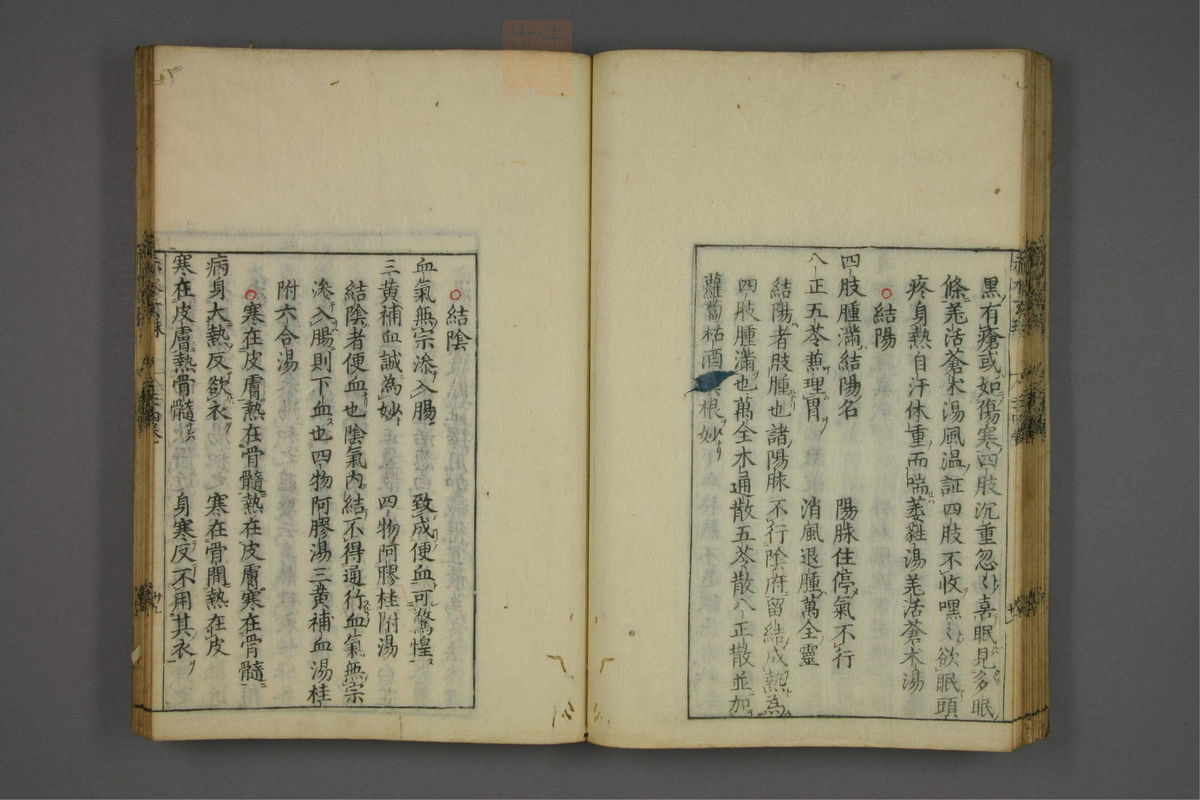 黒有瘡或如傷寒四肢沉重忽〻喜眠見多眠
條羌活蒼朮湯風温証四肢不收嘿〻欲眠頭
疼身熱自汗体重而喘葳蕤湯羌活蒼木湯
○結陽
四肢腫滿結陽名　陽脉住停氣不行
八正五苓兼理胃　消風退腫萬全靈
結陽者肢腫也諸陽脉不行陰府留結成熱為
四肢腫滿也萬全木通散五苓散八正散並加
蘿蔔枯酒根妙
○結陰
血氣無宗滲入腸　致成便血可驚惶
三黄補血誠為妙　四物阿膠桂附湯
結陰者便血也陰氣内結不得通行血氣無宗
滲入腸則下血也四物阿膠湯三黄補血湯桂
附六合湯
○寒在皮膚熱在骨髓熱在皮膚寒在骨髓
病身大熱反欲衣　寒在骨間熱在皮
寒在皮膚熱骨髓　身寒反不用其衣